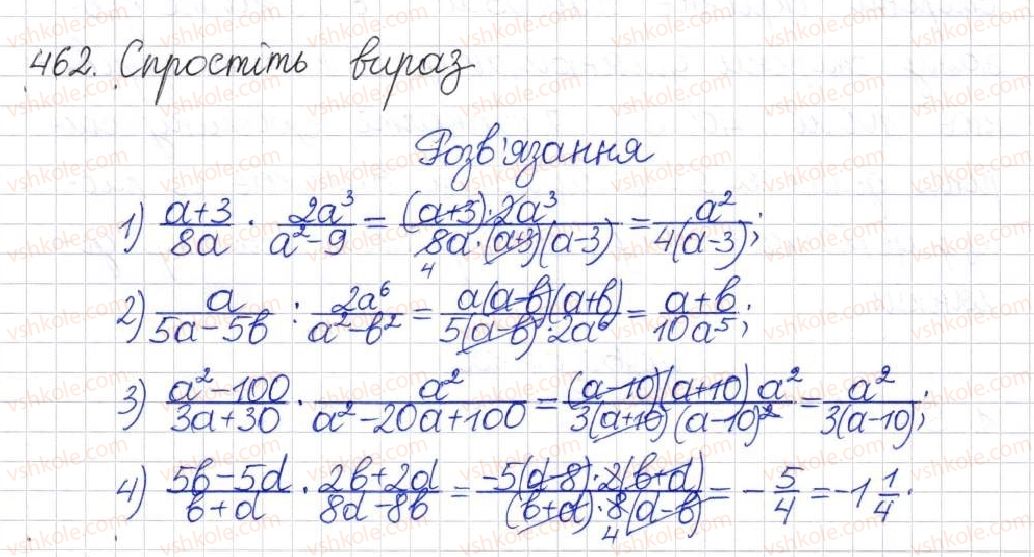 462. Спростіть вираз
Розв'язання
1) (a+3)/(8a) · (2a³)/(a²-9) = ((a+3)·2a³)/(8a·(a+3)(a-3)) = a²/(4(a-3));
4
2) a/(5a-5b) : (2a⁶)/(a²-b²) = (a(a-b)(a+b))/(5(a-b)·2a⁶) = (a+b)/(10a⁵);
3) (a²-100)/(3a+30) · a²/(a²-20a+100) = ((a-10)(a+10)a²)/(3(a+10)(a-10)²) = a²/(3(a-10));
4) (5b-5d)/(b+d) · (2b+2d)/(8d-8b) = (-5(d-8)·2(b+d))/((b+d)·8(d-b)) = -5/4 = -1 1/4.
4